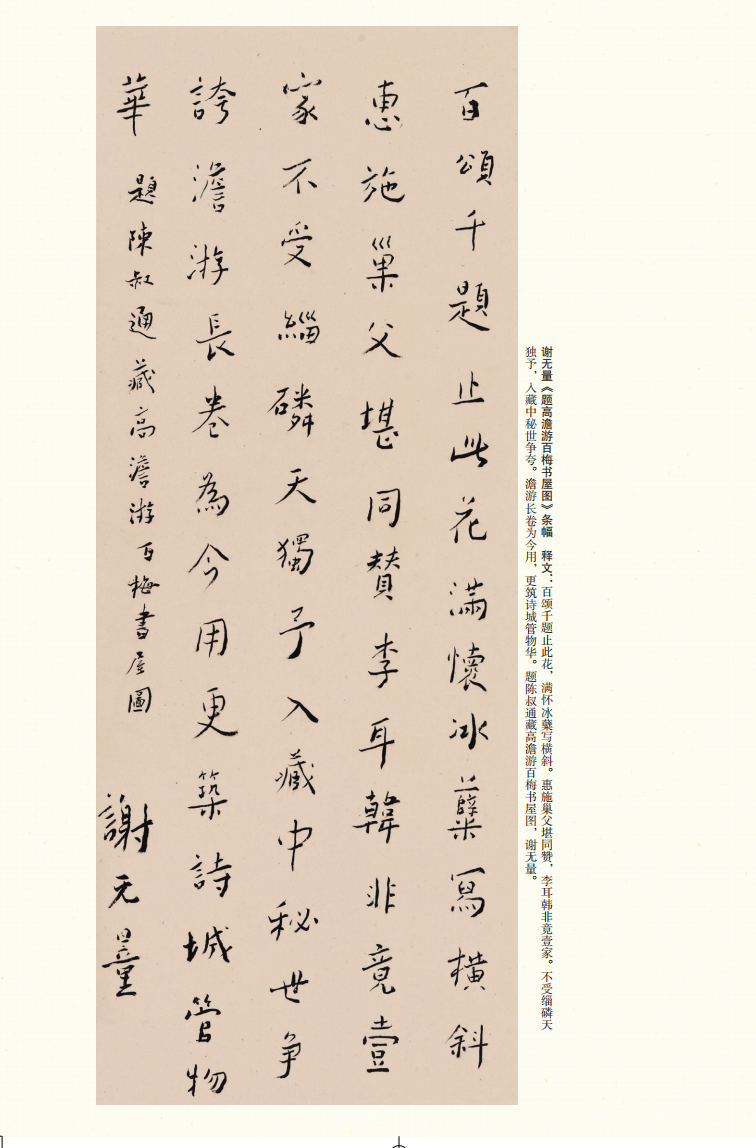 百頌千題止此花滿懷冰蘗寫橫斜
惠施巢父堪同贊李耳韓非竟壹
家不受緇磷天獨予入藏中秘世争
誇澹游長卷為今用更築詩城管物
華 題陳叔通藏高澹游百梅書屋圖
謝无量
谢无量《题高澹游百梅书屋图》条幅 释文：百颂千题止此花，满怀冰蘖写横斜。惠施巢父堪同赞，李耳韩非竟壹家。不受缁磷天
独予，入藏中秘世争夸。澹游长卷为今用，更筑诗城管物华。题陈叔通藏高澹游百梅书屋图，谢无量。